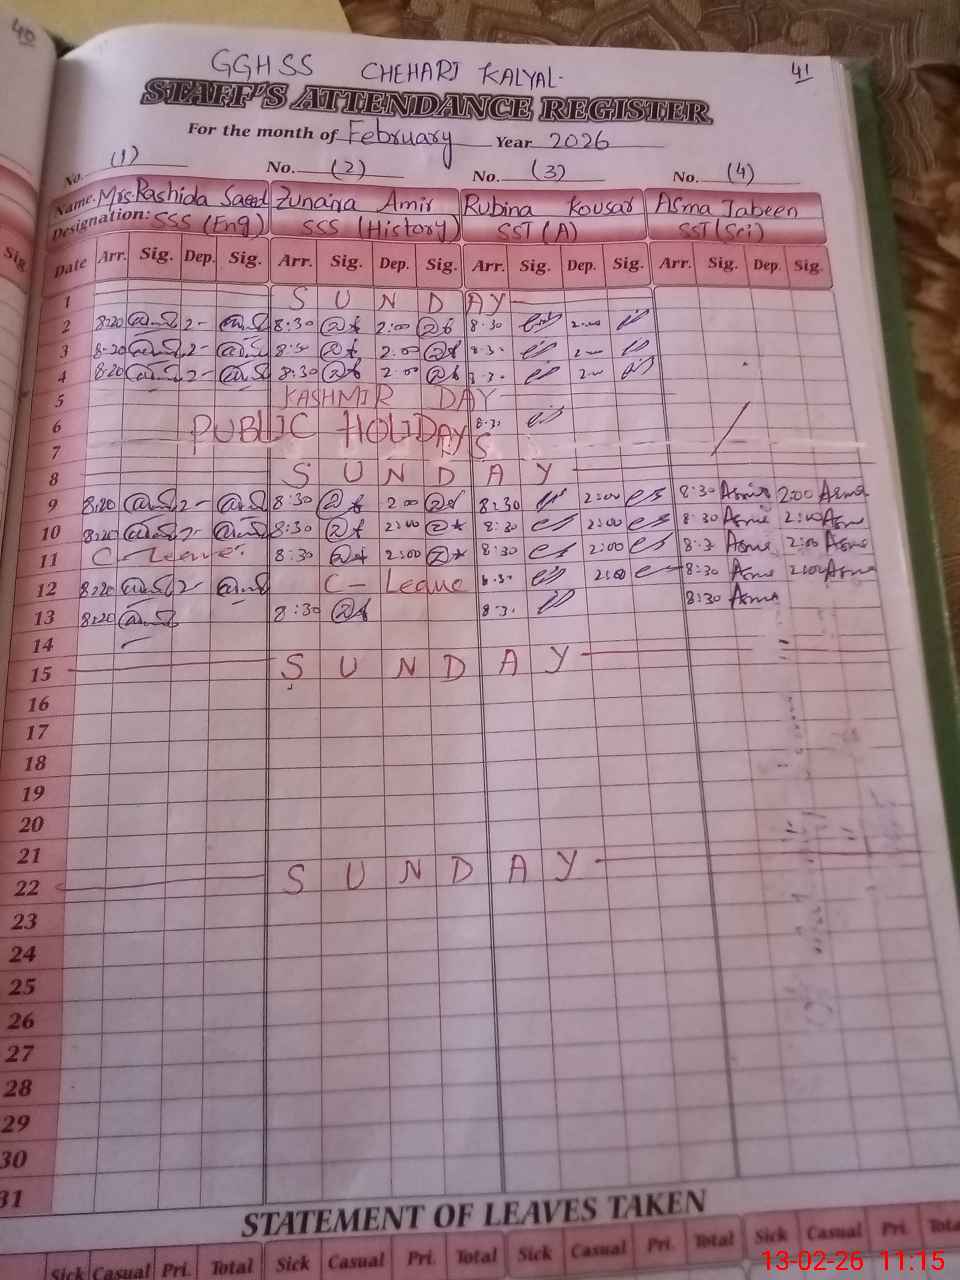 40
41
GGHSS CHEHARI KALYAL.
STAFF'S ATTENDANCE REGISTER
For the month of February Year 2026
No. (1) No. (2) No. (3) No. (4)
Name. Mrs. Rashida Saeed Zunaira Amir Rubina Kousar Asma Jabeen
Designation: SSS (Eng) SSS (History) SST (A) SST (Sci)
Sig.
Date Arr. Sig. Dep. Sig. Arr. Sig. Dep. Sig. Arr. Sig. Dep. Sig. Arr. Sig. Dep. Sig.
1 SUNDAY
2 8:20 2- 8:30 2:00 8:30 2:00
3 8:20 2- 8:30 2:00 8:3. 2:00
4 8:20 2- 8:30 2:00 8:3. 2:00
5 KASHMIR DAY
6 8:3.
PUBLIC HOLIDAYS
7
8 SUNDAY
9 8:20 2- 8:30 2:00 8:30 2:00 8:30 Asma 2:00 Asma
10 8:20 2- 8:30 2:00 8:30 2:00 8:30 Asma 2:00 Asma
11 C-Leave. 8:30 2:00 8:30 2:00 8:3 Asma 2:00 Asma
12 8:20 2- C-Leave 8:30 2:00 8:30 Asma 2:00 Asma
13 8:20 8:30 8:3. 8:30 Asma
14
15 SUNDAY
16
17
18
19
20
21
22 SUNDAY
23
24
25
26
27
28
29
30
31
STATEMENT OF LEAVES TAKEN
Sick Casual Pri. Total Sick Casual Pri. Total Sick Casual Pri. Total Sick Casual Pri. Total
13-02-26 11:15